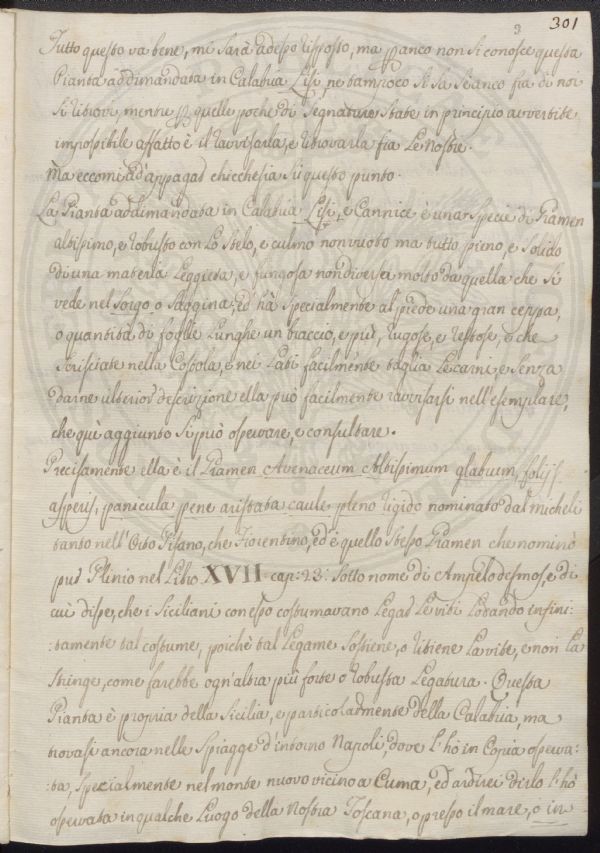 3
301
Tutto questo va bene, mi sarà adesso risposto, ma quanco non si conosce questa
Pianta addimandata in Calabria Lisi, ne tampoco si sa se anco fra di noi
si ritrovi, mentre per quelle poche di segnature state in principio avvertite
impossibile affatto è il ravvisarla, e ritrovarla fra le nostre.
Ma eccomi ad appagar chicchesia sù questo punto.
La Pianta addimandata in Calabria Lisi, e Cannice è una specie di Gramen
altissimo, e robusto con lo stelo, e culmo non vuoto ma tutto pieno, e solido
di una materia leggiera, e fungosa non diversa molto da quella che si
vede nel sorgo o saggina, ed hà specialmente al piede una gran ceppa,
o quantità di foglie lunghe un braccio, e più, rugose, e restose, e che
strisciate nella costola, e nei lati facilmente taglia le carni, e senza
darne ulterior descrizione ella può facilmente ravvisarsi nell'esemplare,
che quì aggiunto si può osservare, e consultare.
Precisamente ella è il Gramen Avenaceum Altissimum glabrum, folijs
asperis, panicula pene aristata caule pleno rigido nominato dal Micheli
tanto nell'Orto Pisano, che Fiorentino, ed è quello stesso Gramen che nominò
pur Plinio nel Libro XVII cap: 23: sotto nome di Ampelodesmos, e di
cui disse, che i Siciliani con esso costumavano legar le viti lodando infini:
:tamente tal costume, poichè tal legame sostiene, o ritiene la vite, e non la
stringe, come farebbe ogn'altra più forte o robusta legatura. Questa
Pianta è propria della Sicilia, e particolarmente della Calabria, ma
trovasi ancora nelle spiagge d'intorno Napoli, dove l'hò in copia osserva:
:ta, specialmente nel monte nuovo vicino a Cuma, ed ardirei dirlo l'hò
osservata in qualche luogo della nostra Toscana, o presso il mare, o in